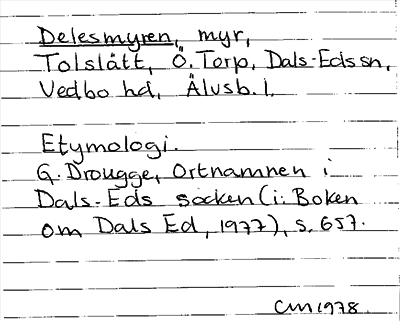 Delesmyren, myr,
Tolslått, Ö. Torp, Dals-Eds sn,
Vedbo hd, Älvsb. l.
Etymologi.
G. Drougge, Ortnamnen i
Dals-Eds socken (i: Boken
om Dals Ed, 1977), s. 657.
CM 1978.